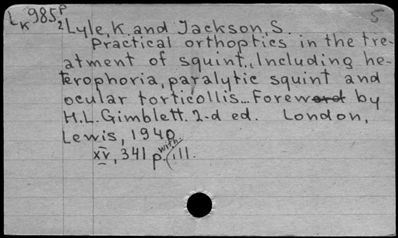 LK 985P2 5
Lyle, K. and Jackson, S.
Practical orthoptics in the tre-
atment of squint, Including he-
terophoria, paralytic squint and
ocular torticollis... Foreword by
H.L. Gimblett. 2-d ed. London,
Lewis, 1940
XV, 341 p. with ill.